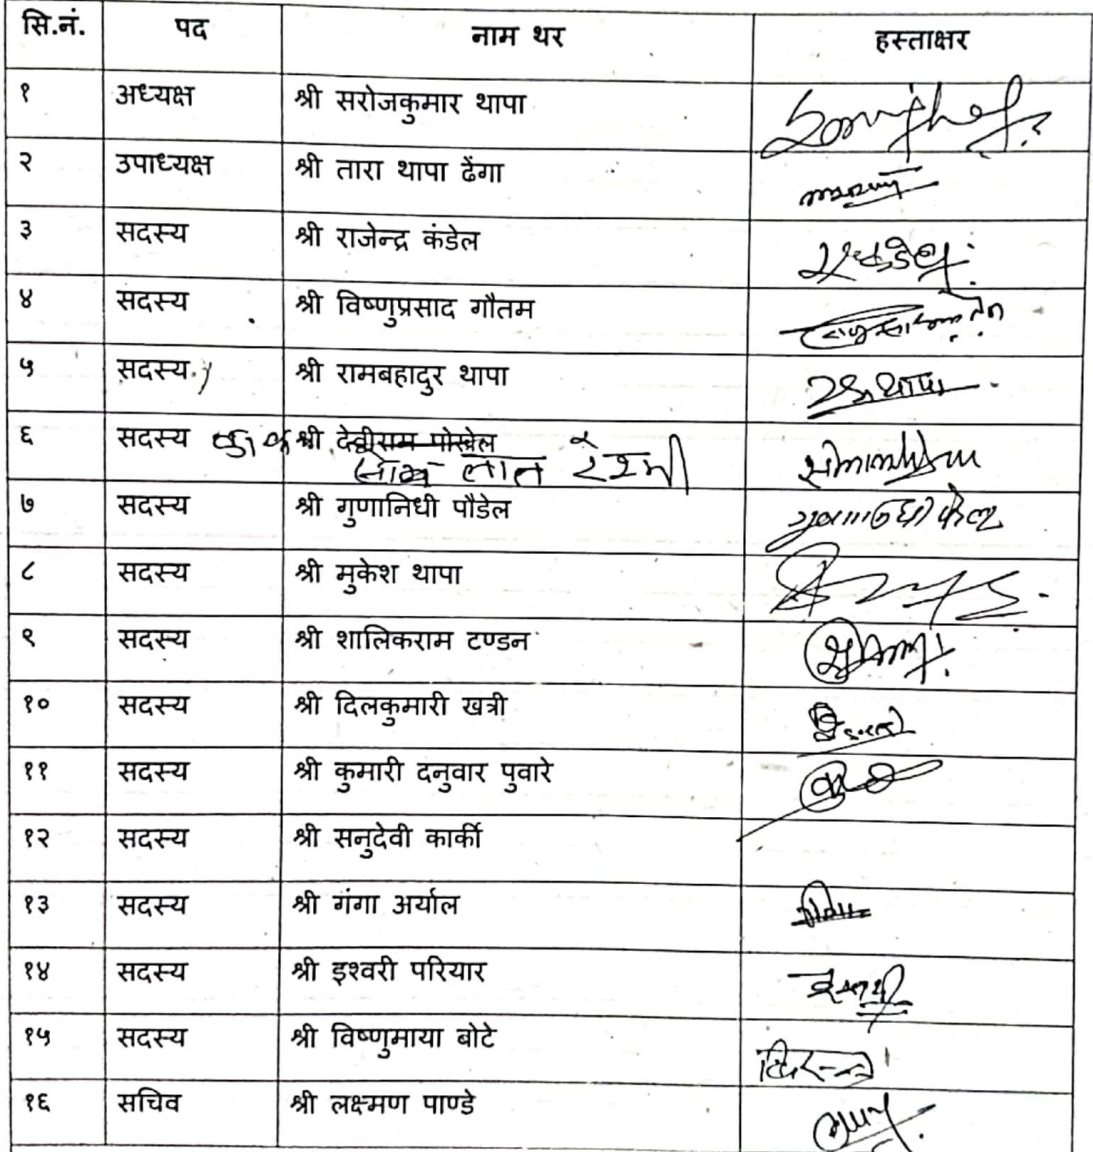 सि.नं. पद नाम थर हस्ताक्षर
१ अध्यक्ष श्री सरोजकुमार थापा
२ उपाध्यक्ष श्री तारा थापा ढेंगा
३ सदस्य श्री राजेन्द्र कंडेल
४ सदस्य श्री विष्णुप्रसाद गौतम
५ सदस्य श्री रामबहादुर थापा
६ सदस्य श्री देवीराम पोख्रेल
लाल रेश्मी
७ सदस्य श्री गुणानिधी पौडेल
८ सदस्य श्री मुकेश थापा
९ सदस्य श्री शालिकराम टण्डन
१० सदस्य श्री दिलकुमारी खत्री
११ सदस्य श्री कुमारी दनुवार पुवारे
१२ सदस्य श्री सनुदेवी कार्की
१३ सदस्य श्री गंगा अर्याल
१४ सदस्य श्री इश्वरी परियार
१५ सदस्य श्री विष्णुमाया बोटे
१६ सचिव श्री लक्ष्मण पाण्डे